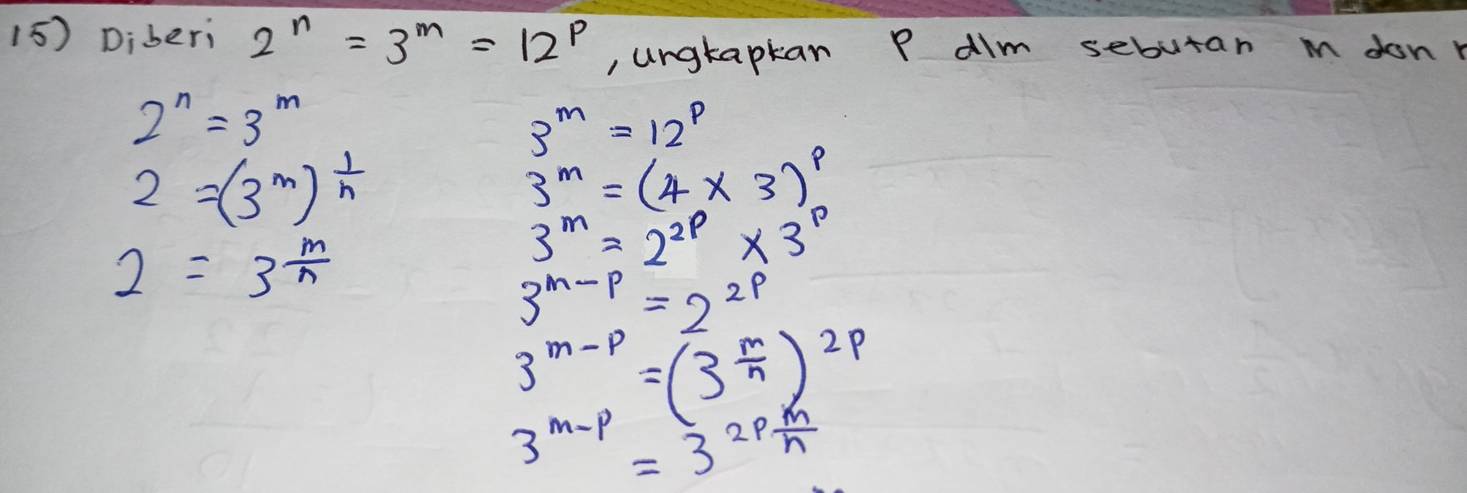 15) Diberi 2ⁿ = 3ᵐ = 12ᵖ, ungkapkan P dlm sebutan m dan
2ⁿ = 3ᵐ
2 = (3ᵐ)^(1/n)
2 = 3^(m/n)
3ᵐ = 12ᵖ
3ᵐ = (4 × 3)ᵖ
3ᵐ = 2²ᵖ × 3ᵖ
3ᵐ⁻ᵖ = 2²ᵖ
3ᵐ⁻ᵖ = (3^(m/n))²ᵖ
3ᵐ⁻ᵖ = 3^(2p m/n)